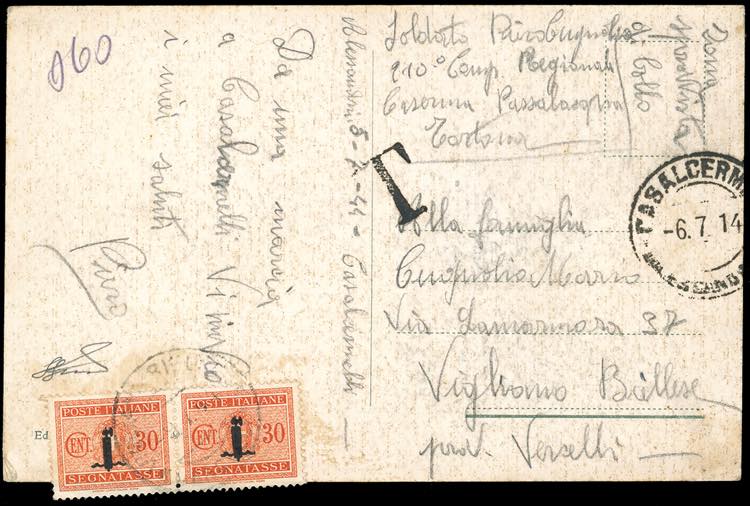 160
Da una marcia
a Casalcermelli Vi invio
i miei saluti
Piero
Alessandria, 5-7-44 - Casalcermelli -
Soldato Piero Cugnolio
210° Comp. Regionale
Caserma Passalacqua
Tortona
Zona
Sprovvista
di bollo
T
Alla famiglia
Cugnolio Mario
Via Lamarmora 37
Vigliano Biellese
prov. Vercelli -
CASALCERM
-6.7 14
Ed
POSTE ITALIANE
CENT. 30
SEGNATASSE
POSTE ITALIANE
CENT. 30
SEGNATASSE